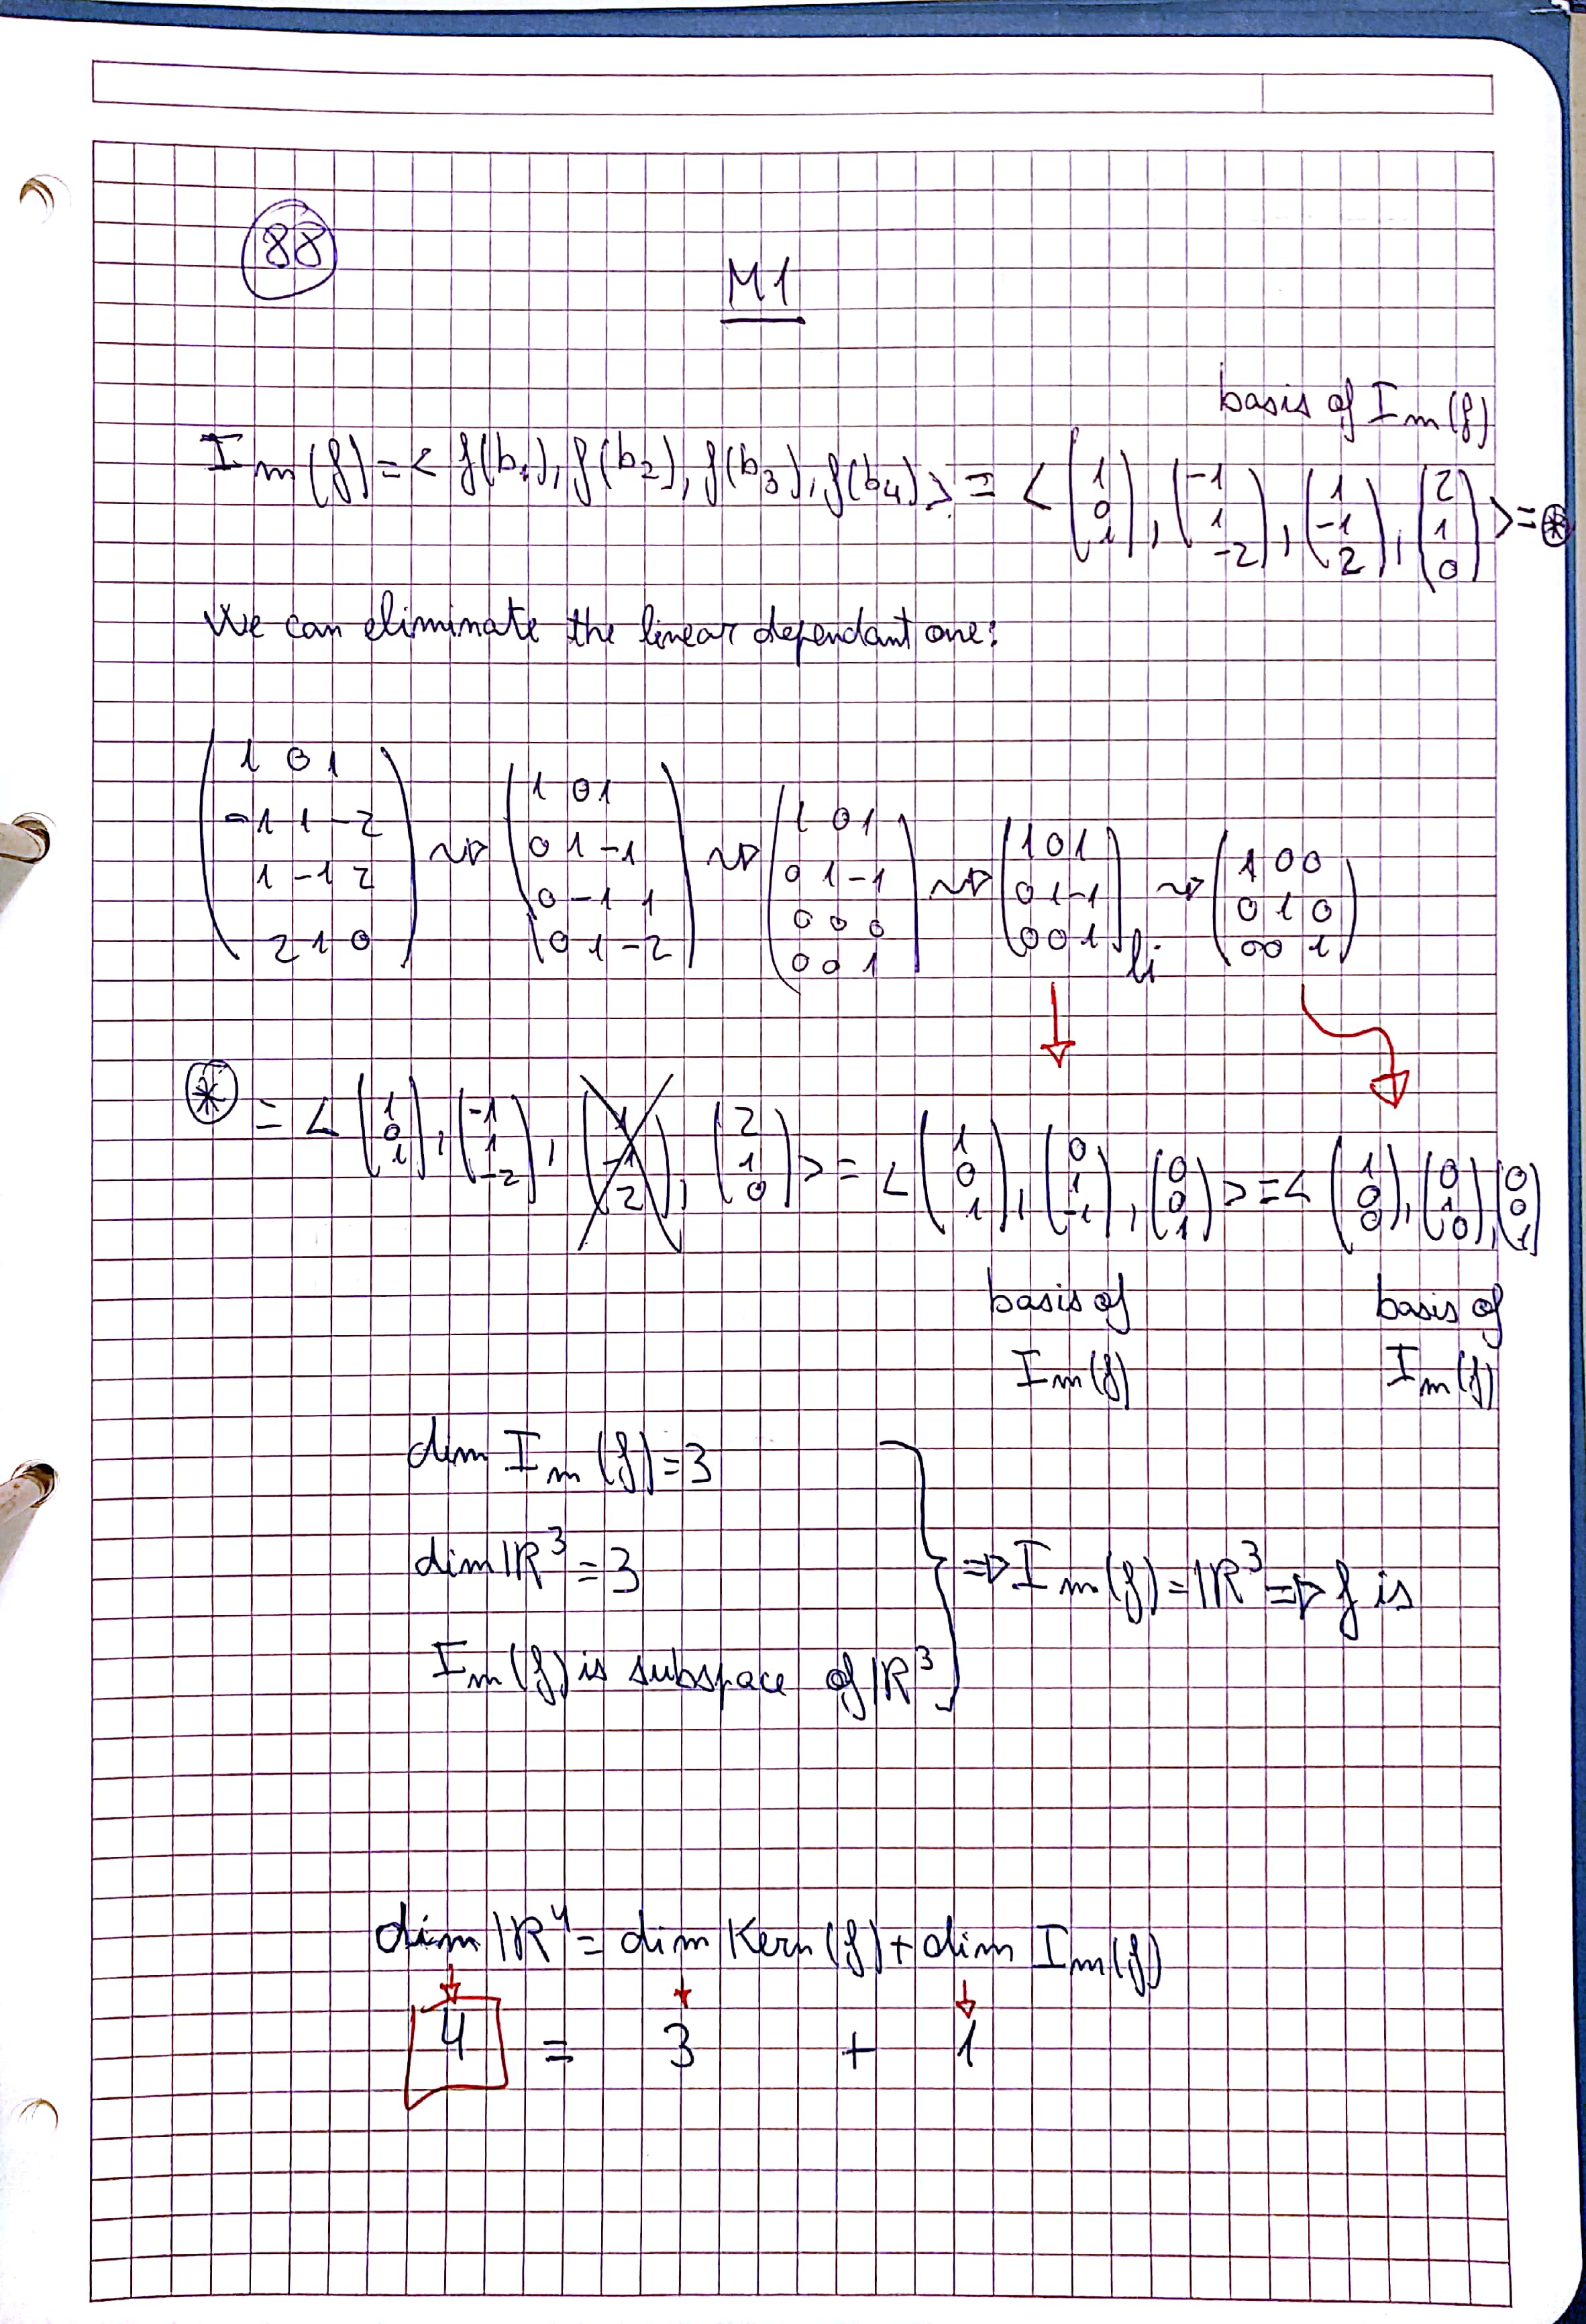 88
M1
basis of Im(f)
Im(f) = < f(b₁), f(b₂), f(b₃), f(b₄) > = < (1 0 1), (-1 1 -2), (1 -1 2), (2 1 0) > = ⊛
We can eliminate the linear dependant one:
(1 0 1 / -1 1 -2 / 1 -1 2 / 2 1 0) ~> (1 0 1 / 0 1 -1 / 0 -1 1 / 0 1 -2) ~> (1 0 1 / 0 1 -1 / 0 0 0 / 0 0 1) ~> (1 0 1 / 0 1 -1 / 0 0 1) li ~> (1 0 0 / 0 1 0 / 0 0 1)
⊛ = < (1 0 1), (-1 1 -2), (1 -1 2), (2 1 0) > = < (1 0 1), (0 1 -1), (0 0 1) > = < (1 0 0), (0 1 0), (0 0 1)
basis of Im(f)
basis of Im(f)
dim Im(f) = 3
dim ℝ³ = 3
Im(f) is subspace of ℝ³
} => Im(f) = ℝ³ => f is
dim ℝ⁴ = dim Kern(f) + dim Im(f)
4 = 3 + 1